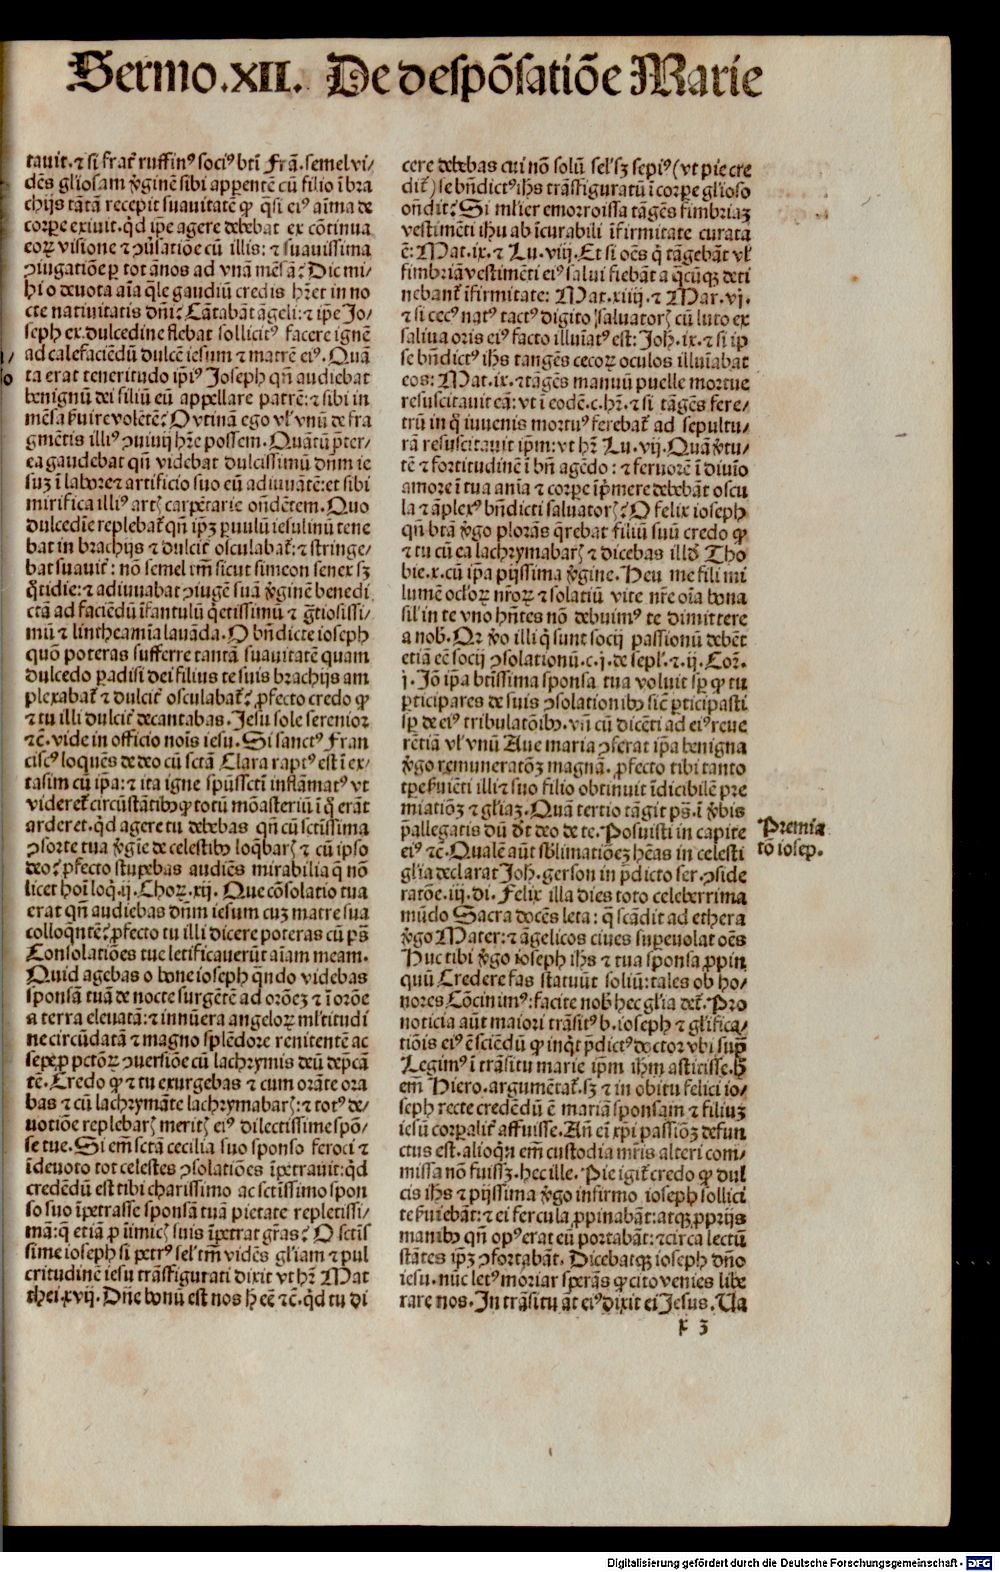 Sermo.XII. De despõsatiõe Marie
tauit.⁊ si frat̃ ruffinꝰ sociꝰ bt̃i Frã.semel vi/
dẽs gl̃iosam v̾ginẽ sibi apparentẽ cũ filio ĩ bra
chijs tãtã recepit suauitatẽ ꝙ q̃si eiꝰ aĩma de
corꝑe exiuit.qd̓ ip̃e agere debebat ex cõtinua
eoꝝ visione ⁊ ꝯũsatiõe cũ illis: ⁊ suauissima
ꝯiugatiõe ꝑ tot ãnos ad vnã mẽsã? Dic mi/
hi o deuota aĩa q̃le gaudiũ credis hr̃et in no
cte natiuitatis dñi? Cãtabãt ãgeli: ⁊ ip̃e Jo/
seph ex.dulcedine flebat sollicitꝰ facere ignẽ
ad calefaciẽdũ dulcẽ iesum ⁊ matrẽ eiꝰ. Quã
ta erat teneritudo ip̃iꝰ Joseph qñ audiebat
benignũ dei filiũ eũ appellare patrẽ: ⁊ sibi in
mẽsa ẞuire volẽtẽ? O vtinã ego vl̓ vnũ de fra
gmẽtis illiꝰ ꝯuiuij hr̃e possem. Quãtũ p̃ter/
ea gaudebat qñ videbat dulcissimũ dñm ie
suꝫ ĩ labore ⁊ artificio suo eũ adiuuãtẽ: et sibi
mirifica illiꝰ artꝭ carpẽtarie oñdẽtem. Quo
dulcedĩe replebat̃ qñ ip̃ꝫ ꝑuulũ iesulinũ tene
bat in brachijs ⁊ dulcit̃ osculabat̃: ⁊ stringe/
bat suauit̃: nõ semel tm̃ sicut simeon senex sꝫ
q̃tidie: ⁊ adiuuabat ꝯiugẽ suã v̾ginẽ benedi
ctã ad faciẽdũ ĩfantulũ q̃etissimũ ⁊ g̃tiosissi/
mũ ⁊ lintheamĩa lauãda. O bñdicte ioseph
quõ poteras sufferre tantã suauitatẽ quam
dulcedo ꝑadisi dei filius te suis brachijs am
plexabat̃ ⁊ dulcit̃ osculabat̃? ꝓfecto credo ꝙ
⁊ tu illi dulcit̃ decantabas. Jesu sole serenior
⁊c̃. vide in officio noĩs iesu. Si sanctꝰ Fran
ciscꝰ loquẽs de deo cũ sctã Clara raptꝰ est ĩ ex/
tasim cũ ip̃a: ⁊ ita igne spũssctĩ inflãmatꝰ vt
videret̃ circũstãtibꝰ ꝙ totũ mõasteriũ ĩ q̃ erãt
arderet. qd̓ agere tu debebas qñ cũ sctĩssima
ꝯsorte tua v̾gĩe de celestibꝰ loq̃barꝭ ⁊ cũ ipso
deo? ꝓfecto stupebas audiẽs mirabilia q̃ nõ
licet hoĩ loq̃.ij.Choꝝ.xij. Que cõsolatio tua
erat qñ audiebas dñm iesum cuꝫ matre sua
colloq̃ntẽ? ꝓfecto tu illi dicere poteras cũ p̃s
Consolatiões tue letificauerũt aĩam meam.
Quid agebas o bone ioseph q̃ndo videbas
sponsã tuã de nocte surgẽtẽ ad orõeꝫ ⁊ ĩ orõe
a terra eleuatã: ⁊ innũera angeloꝝ ml̓titudi
ne circũdatã ⁊ magno splẽdore renitentẽ ac
sepe ꝓ pctõꝝ ꝯuersiõe cũ lachrymis deũ dep̃cã
tẽ. Credo ꝙ ⁊ tu exurgebas ⁊ cum orãte ora
bas ⁊ cũ lachrymãte lachrymabarꝭ: ⁊ totꝰ de/
uotiõe replebarꝭ meritꝭ eiꝰ dilectissime spõ/
se tue. Si em̃ sctã cecilia suo sponso feroci ⁊
ĩdeuoto tot celestes ꝯsolatiões ĩpetrauit: qd̓
credẽdũ est tibi charissimo ac sctĩssimo spon
so suo ĩpetrasse sponsã tuã pietate repletissi/
mã: q̃ etiã ꝓ iĩmicꝭ suis ĩpetrat gr̃as? O sctĩs
sime ioseph si petrꝰ sel̓ tm̃ vidẽs gl̃iam ⁊ pul
critudinẽ iesu trãsfigurati dixit vt hr̃ Mat
thei.xvij. Dñe bonũ est nos h̃ eẽ ⁊c̃. qd̓ tu di
cere debebas cui nõ solũ sel̓ sꝫ sepiꝰ (vt pie cre
dit̃) se bñdictꝰ ihs trãsfiguratũ ĩ corꝑe gl̃ioso
oñdit? Si ml̓ier emorroissa tãgẽs fimbriaꝫ
vestimẽti ihu ab ĩcurabili ĩfirmitate curata
ẽ: Mat.ix.⁊ Lu.viij. Et si oẽs q̃ tãgebãt vl̓
fimbriã vestimẽti eiꝰ salui fiebãt a q̃cũqꝫ deti
nebant̃ ĩfirmitate: Mat.xiiij.⁊ Mar.vj.
⁊ si cecꝰ natꝰ tactꝰ digito saluatorꝭ cũ luto ex
saliua oris eiꝰ facto illuĩatꝰ est: Joh.ix.⁊ si ip̃
se bñdictꝰ ihs tangẽs cecoꝝ oculos illuĩabat
eos: Mat.ix.⁊ tãgẽs manuũ puelle mortue
resuscitauit eã: vt ĩ eodẽ.c.hr̃.⁊ si tãgẽs fere/
trũ in q̃ iuuenis mortuꝰ ferebat̃ ad sepultu/
rã resuscitauit ip̃m: vt hr̃ Lu.vij. Quã v̾tu/
tẽ ⁊ fortitudinẽ ĩ bñ agẽdo: ⁊ feruorẽ ĩ diuĩo
amore ĩ tua anĩa ⁊ corꝑe ĩp̃mere debebãt oscu
la ⁊ ãplexꝰ bñdicti saluatorꝭ? O felix ioseph
qñ btã v̾go plorãs q̃rebat filiũ suũ credo ꝙ
⁊ tu cũ ea lachrymabarꝭ ⁊ dicebas illd̓ Tho
bie.x. cũ ip̃a pijssima v̾gine. Heu me fili mi
lumẽ ocl̓oꝝ nr̃oꝝ ⁊ solatiũ vite nr̃e oĩa bona
sil̓ in te vno hñtes nõ debuimꝰ te dimittere
a nob̓. Qꝛ v̾o illi q̃ sunt socij passionũ debẽt
etiã eẽ socij ꝯsolationũ.c.j.de sepl̓.⁊.ij. Coꝝ.
j. Jõ ip̃a btĩssima sponsa tua voluit sꝑ ꝙ tu
ꝑticipares de suis ꝯsolationibꝰ sic̃ ꝑticipasti
sꝑ de eiꝰ tribulatõibꝰ. vñ cũ dicẽti ad eiꝰ reue
rẽtiã vl̓ vnũ Aue maria ꝯferat ip̃a benigna
v̾go remuneratõꝫ magnã. ꝓfecto tibi tanto
tꝑe ẞuiẽti illi ⁊ suo filio obtinuit ĩdicibilẽ pre
miatiõꝫ ⁊ gl̃iaꝫ. Quã tertio tãgit p̃s. ĩ v̾bis
p̃allegatis dũ d̓t deo de te. Posuisti in capite
eiꝰ ⁊c̃. Qualẽ aũt sb̓limatiõeꝫ hẽas in celesti
gl̃ia declarat Joh.gerson in p̃dicto ser.ꝯside
ratõe.iij.di. Felix illa dies toto celeberrima
mũdo Sacra docẽs leta: q̃ scãdit ad ethera
v̾go Mater: ⁊ ãgelicos ciues suꝑeuolat oẽs
Huc tibi v̾go ioseph ihs ⁊ tua sponsa ꝓpin
quũ Credere fas statuũt soliũ: tales ob ho/
nores Cõcinimꝰ: facite nob̓ hec gl̃ia det̃. Pro
noticia aũt maiori trãsitꝰ b.ioseph ⁊ gl̓ifica/
tiõis eiꝰ ẽ sciẽdũ ꝙ inq̃t p̃dictꝰ doctor vbi supꝰ
Legimꝰ ĩ trãsitu marie ip̃m ihm astitisse. h̃
em̃ Hiero.argumẽtat̃.sꝫ ⁊ in obitu felici io/
seph recte credẽdũ ẽ mariã sponsam ⁊ filiuꝫ
iesũ corꝑalit̃ affuisse. Añ eĩ xp̃i passiõꝫ defun
ctus est.alioqñ em̃ custodia mr̃is alteri com/
missa nõ fuissꝫ. hec ille. Pie igit̃ credo ꝙ dul
cis ihs ⁊ pijssima v̾go infirmo ioseph sollici
te ẞuiebãt: ⁊ ei fercula ꝓpinabãt: atqꝫ ꝓprijs
manibꝰ qñ opꝰ erat eũ portabãt: ⁊ circa lectũ
stãtes ip̃ꝫ ꝯfortabãt. Dicebatqꝫ ioseph dño
iesu.nũc letꝰ moriar sꝑãs ꝙ cito venies libe
rare nos. In trãsitu aũt eiꝰ dixit ei Jesus. Ua
x 3
Premia
tõ iosep.
Digitalisierung gefördert durch die Deutsche Forschungsgemeinschaft - DFG